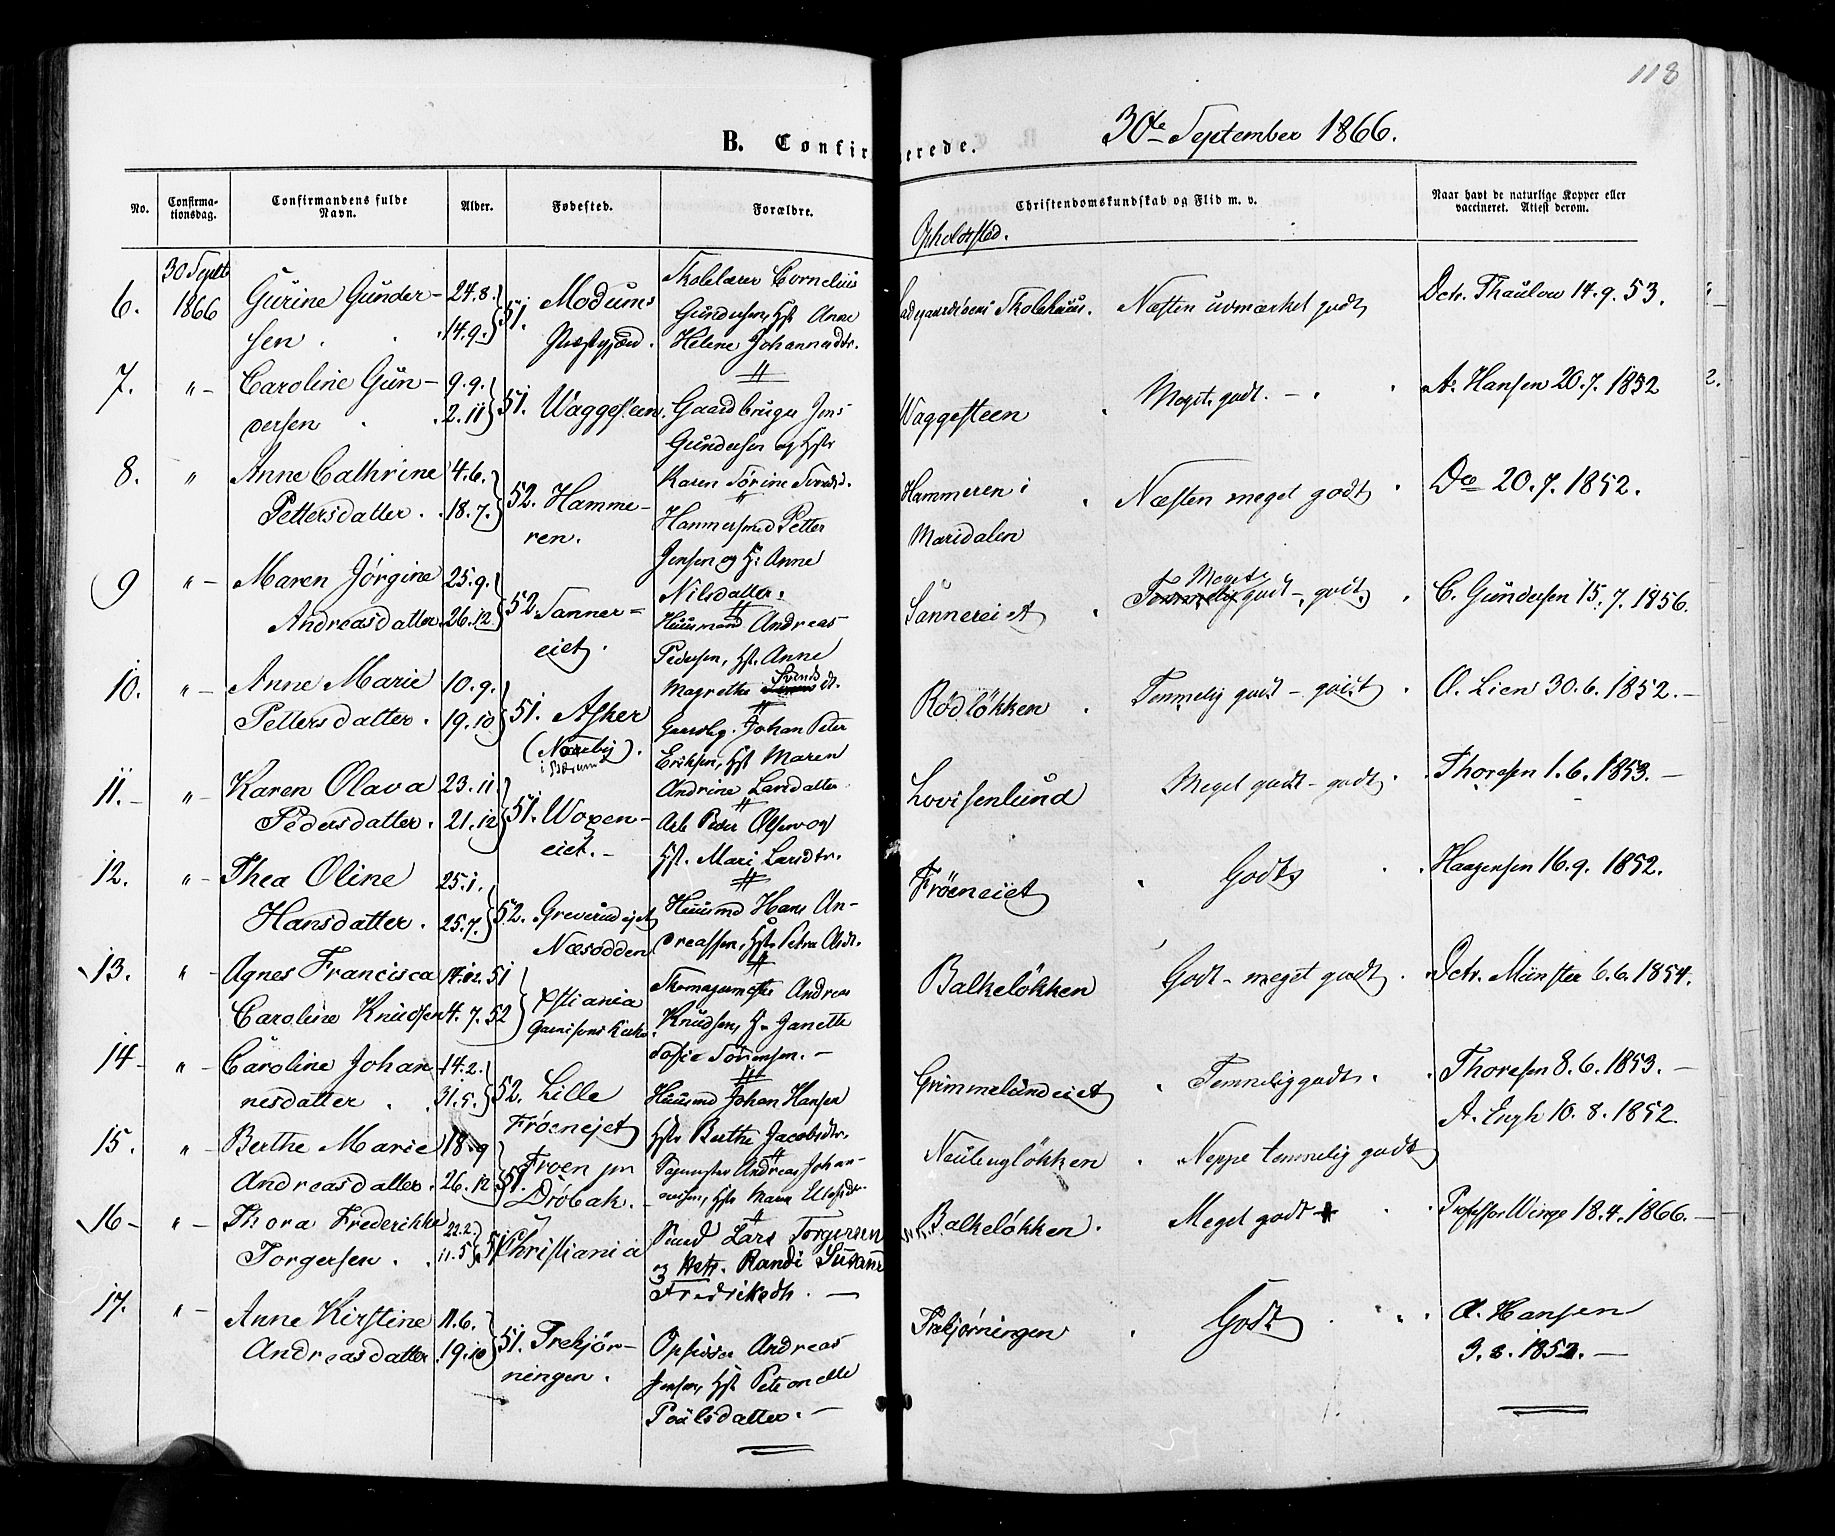 118
30te September 1866.
B. Confirmerede.
No.
Confirma-
tionsdag.
Confirmandens fulde
Navn.
Alder.
Fødested.
Forældre.
Christendomskundskab og Flid m. v.
Naar havt de naturlige Kopper eller
vaccineret. Attest derom.
Opholdssted.
6.
30 Septb
1866
Gurine Gunder-
sen
24.8.
14.9.
51.
Modums
Præstegjæld.
Skolelærer Cornelius
Gundersen, Hst Anne
Helene Johannesdtr.
Skolehuus.
Næsten udmærket godt
Dctr. Thaulow 14.9.53.
7.
"-
Caroline Gun-
dersen
9.9.
2.11
51.
Waggesteen.
Gaardbruger Jens
Gundersen og Hstr
Karen Sørine
Waggesteen
Meget godt. -
A. Hansen 20.7.1852
2.
8.
"
Anne Cathrine
Pettersdatter.
4.6.
18.7.
52.
Hamme-
ren.
Hammersmed Petter
Jensen og H: Anne
Nilsdatter.
Hammeren i
Maridalen
Næsten meget godt
Do 20.7.1852.
9
"-
Maren Jørgine
Andreasdatter.
25.9.
26.12.
52.
Sanner-
eiet.
Huusmand Andreas
Pedersen, Hst. Anne
Magrethe Svends dt.
Sannereiet
Meget
Temmelig godt -, godt,
C. Gundersen 15.7.1856.
10.
"-
Anne Marie
Pettersdatter.
10.9.
19.10
51.
Asker
(Næsby).
i Bærum
Gaardbg. Johan Peter
Eriksen, Hst Maren
Andrine Larsdatter
Rødløkken
Temmelig godt - godt
O. Lien 30.6.1852.-
11.-
"-
Karen Olava
Pedersdatter.
23.11.
21.12
51.
Woxen-
eiet.-
Arb Peder Olsen og
Hst. Mari Larsdtr.
Lovisenlund
Meget godt - godt
Thoresen 1.6.1853.-
12.
"-
Thea Oline
Hansdatter.
25.1.
25.7.
52.
Greverudejet
Næsodden
Huusmd Hans An-
dreassen, Hstr Petra
Fröeneiet
Godt
Haagensen 16.9.1852.
13.
"-
Agnes Francisca
Caroline Knudsen
14.12.51
4.7.52
Xstiania
Garnisons Kirke.
Andreas
Knudsen, H. Janette
Sofie Sörensen.-
Balkeløkken
Godt - meget godt
Dctr. Münster 6.6.1854.
14-
"-
Caroline Johan
nesdatter
14.2.
31.5.
52.
Lille
Fröenejet
Huusmd Johan Hansen
Hstr Berthe Jacobsdtr.
Grimmelundeiet
Temmelig godt
Thoresen 8.6.1853.-
15.
"-
Berthe Marie
Andreasdatter.
18.9
26.12
51.
Froen pr
Drøbak.-
Andreas Johan-
nesen, Hstr Maren
Neuberløkken
Neppe temmelig godt
A. Engh 10.8.1852.
16-
"-
Thora Frederikke
Torgersen
22.2.
11.5
51
Christiania
Smed Lars Torgersen
og Hstr. Randi Susanne
Fredriksdtr.-
Balkeløkken.
Meget godt
Professor Winge 18.4.1866.-
17.
"-
Anne Kirstine
Andreasdatter.
11.6.
19.10
51.
Trekjør-
ningen.
Opsidder Andreas
Jensen, Hst Petronelle
Poulsdatter.-
Trekjørningen
Godt
A. Hansen
3.8.1852.-